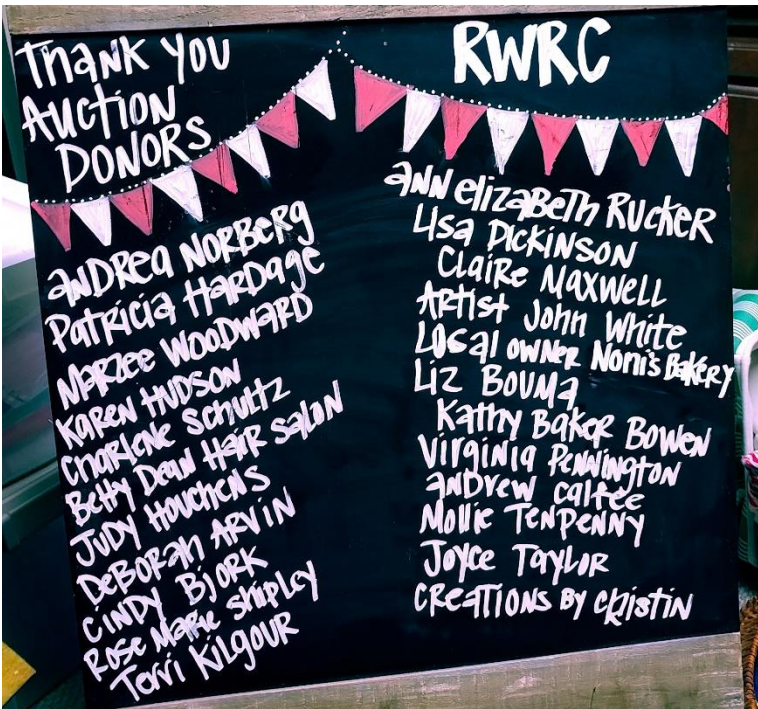 Thank you
Auction
Donors
Andrea Norberg
Patricia Hardage
Marzee Woodward
Karen Hudson
Charlene Schultz
Betty Dean Hair Salon
Judy Houchens
Deborah Arvin
Cindy Bjork
Rose Marie Shipley
Terri Kilgour
RWRC
Ann Elizabeth Rucker
Lisa Dickinson
Claire Maxwell
Artist John White
Local owner Noni's Bakery
Liz Bouma
Kathy Baker Bowen
Virginia Pennington
Andrew Calfee
Mollie Tenpenny
Joyce Taylor
Creations by Cristin